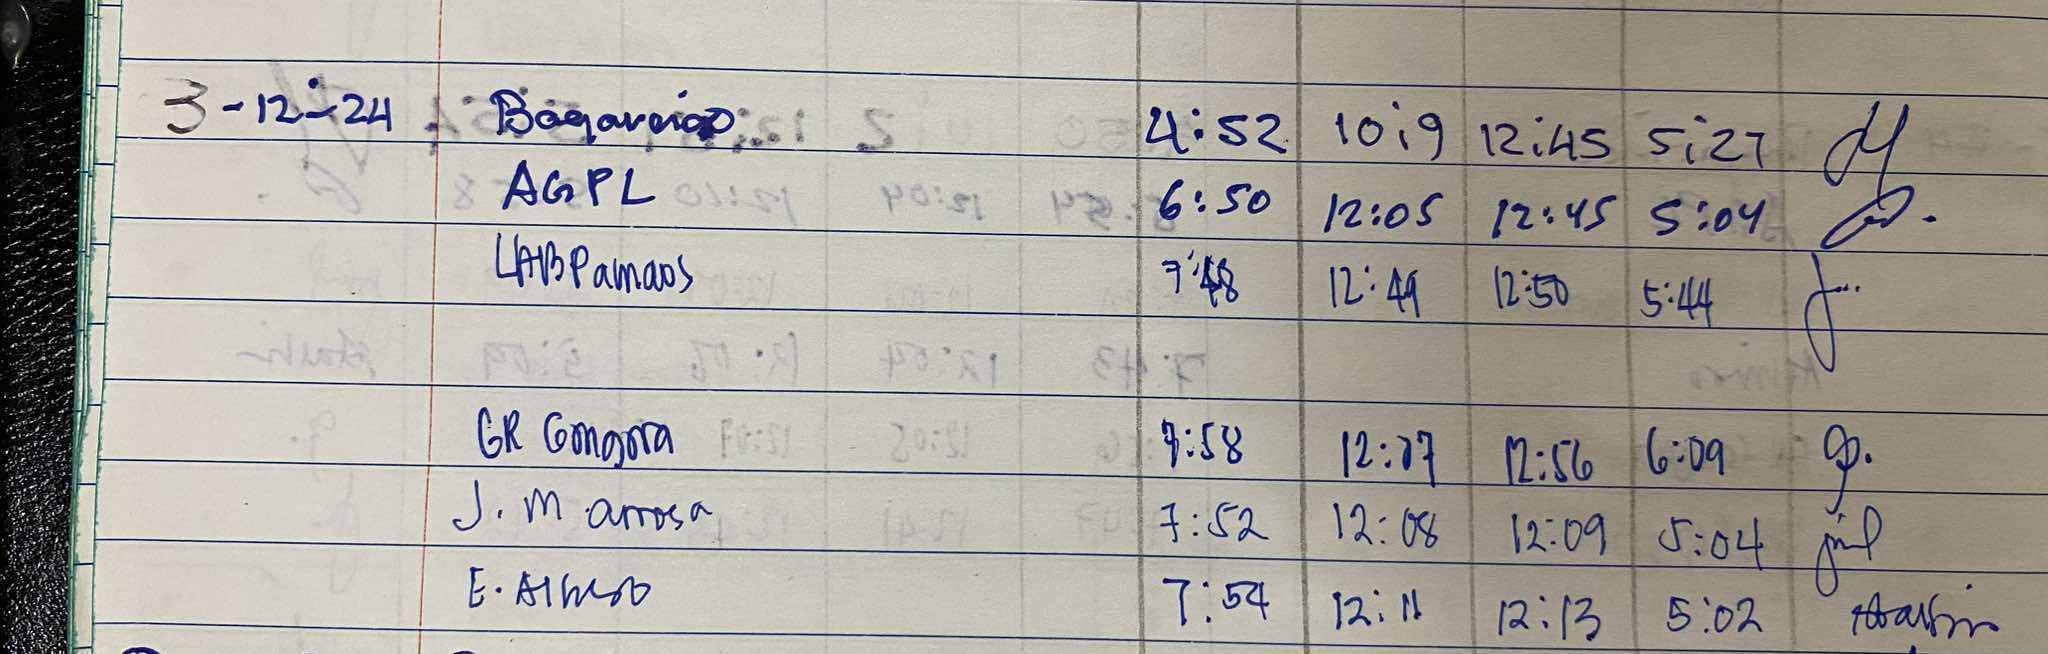 3-12-24 4:52 10:9 12:45 5:27
AGPL 6:50 12:05 12:45 5:04
LABPamaos 7:48 12:49 12:50 5:44
GR Gongora 7:58 12:56 6:09
J. M arrosa 7:52 12:08 12:09 5:04
E. 7:54 12:11 12:13 5:02